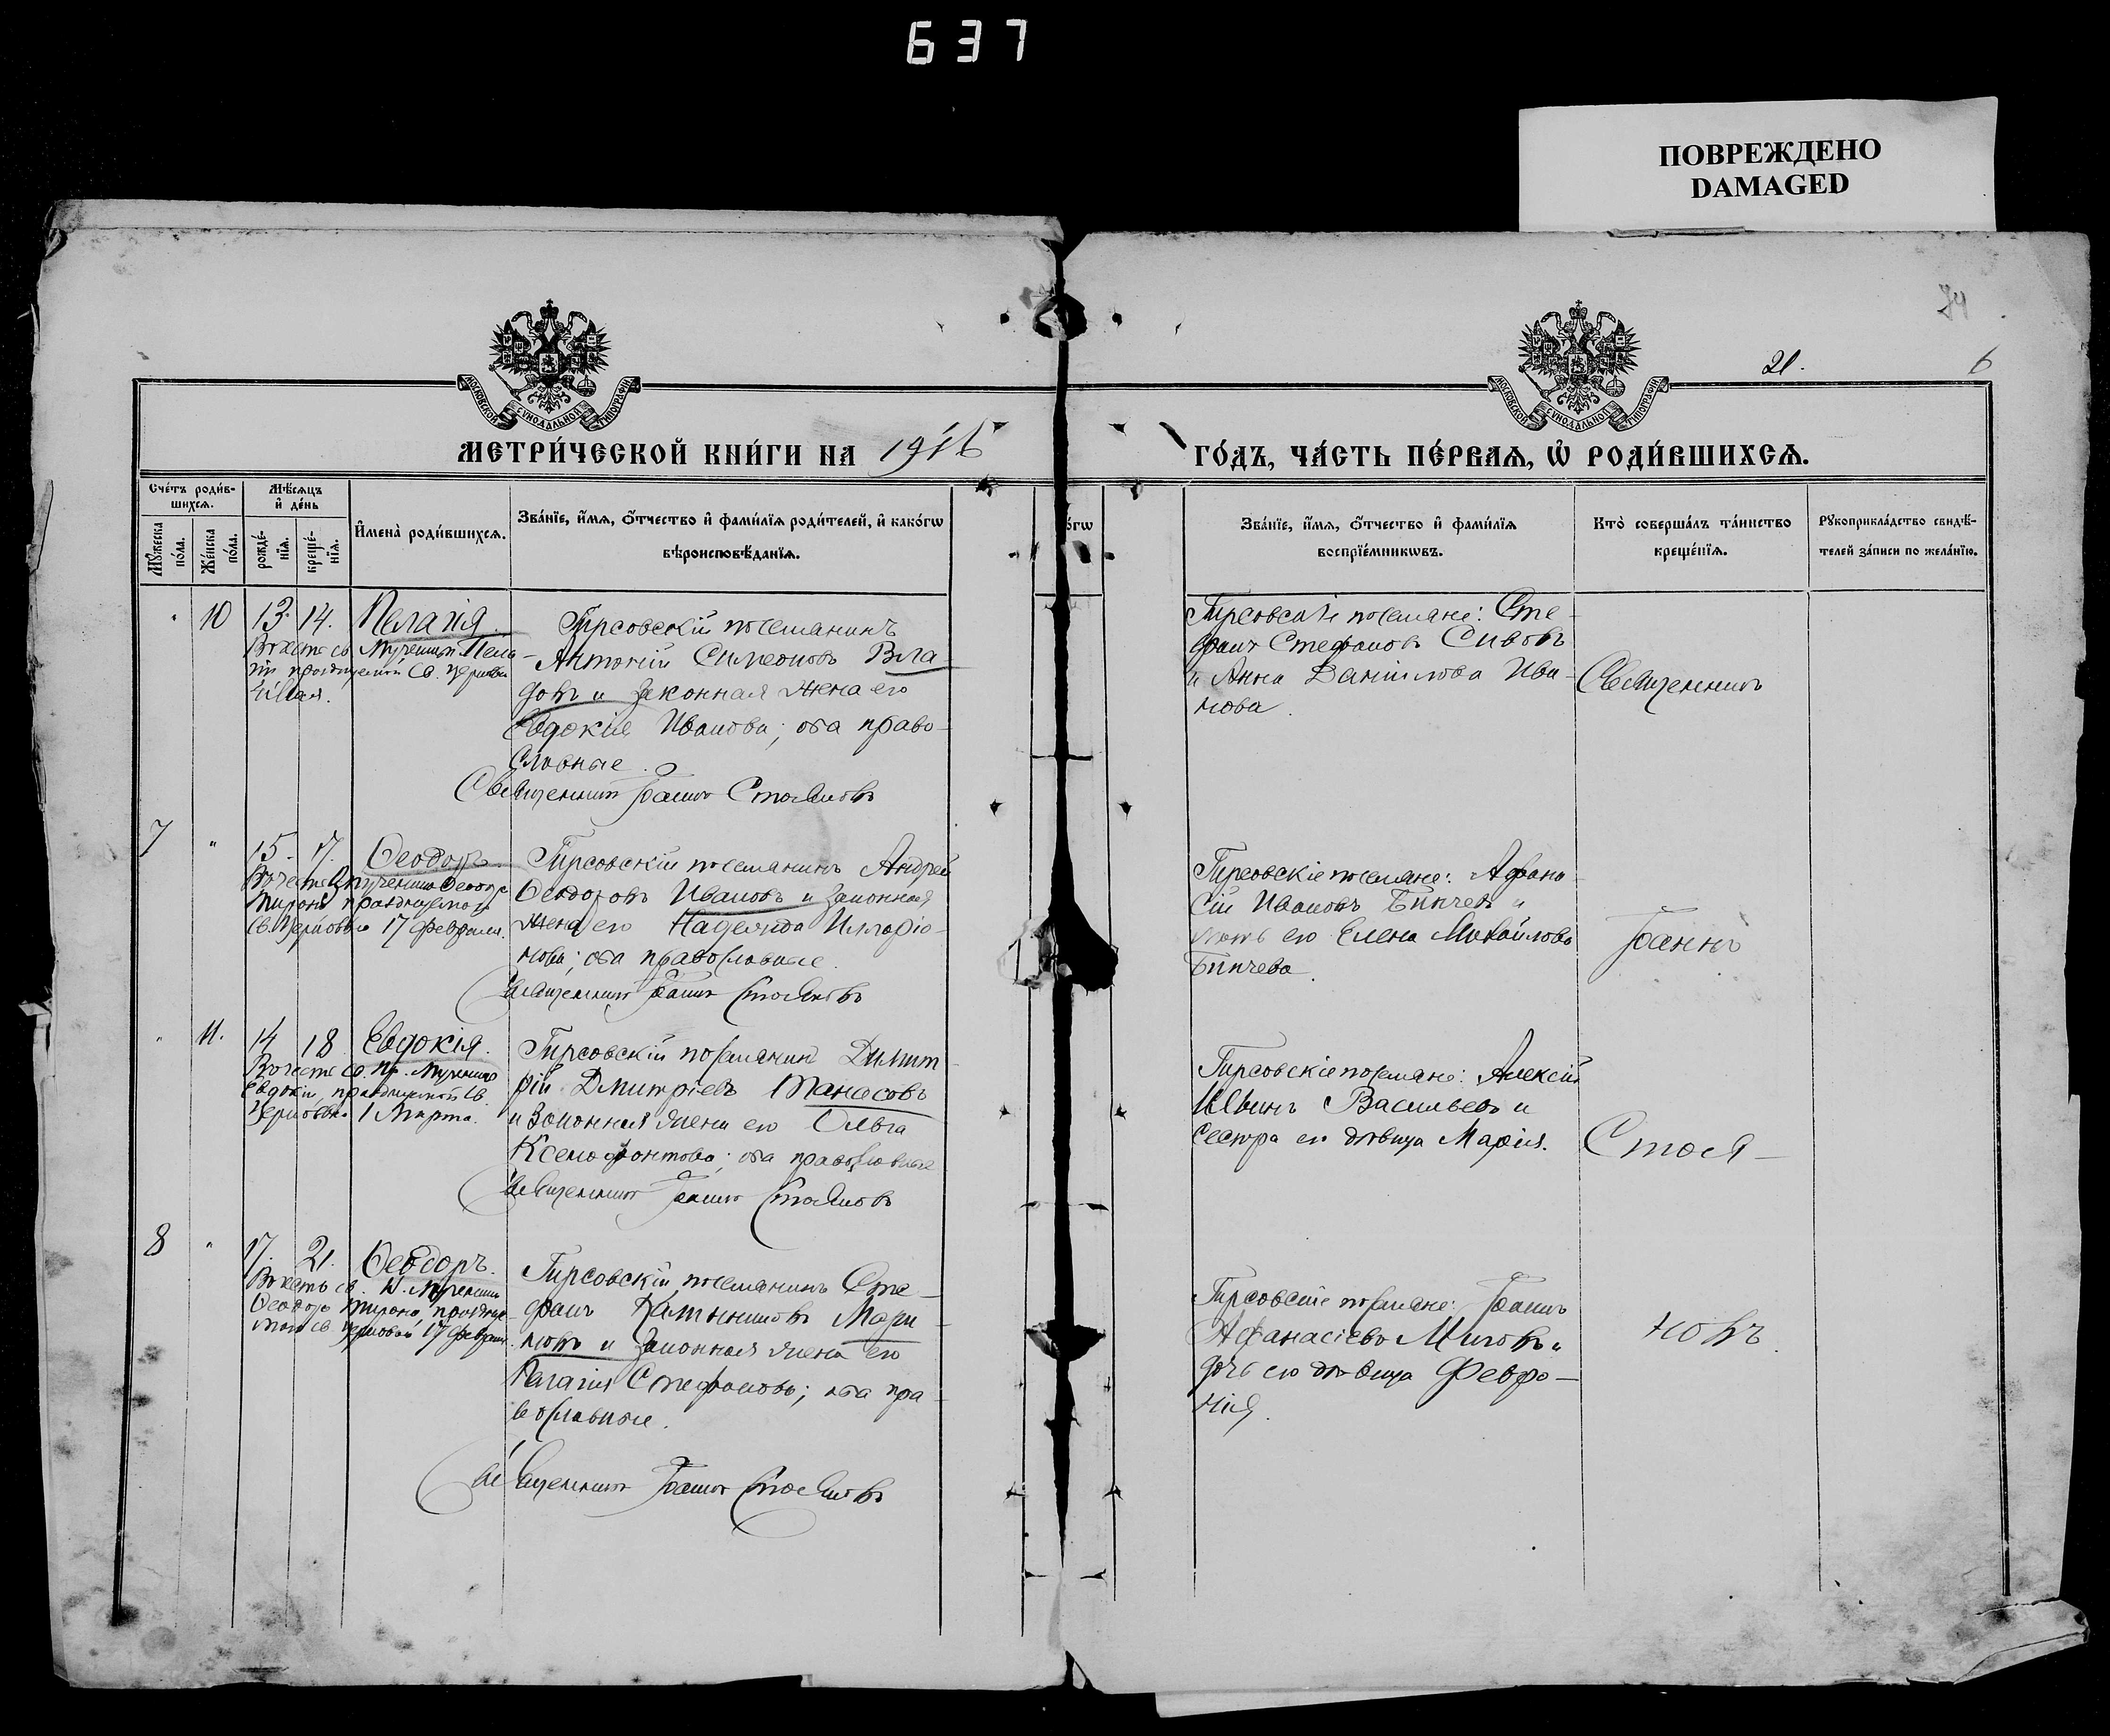 637
ПОВРЕЖДЕНО
DAMAGED
21.
6
МОСКОВСКОЙ СѴНОДАЛЬНОЙ ТИПОГРАФІИ
МОСКОВСКОЙ СѴНОДАЛЬНОЙ ТИПОГРАФІИ
МЕТРИ́ЧЕСКОЙ КНИ́ГИ НА 1916
ГО́ДЪ, ЧА́СТЬ ПЕ́РВАЯ, Ѡ҆ РОДИ́ВШИХСЯ.
Сче́тъ роди́в-
шихся.
Мꙋжеска по́ла.
Же́нска по́ла.
Мѣ́сяцъ и҆ де́нь
рожде́-нїя.
креще́-нїя.
И҆мена̀ роди́вшихся.
Зва́нїе, и҆́мя, ѻ҆́тчество и҆ фами́лїя роди́телей, и҆ како́гѡ
вѣроисповѣ́данїя.
о́гѡ
Зва́нїе, и҆́мя, ѻ҆́тчество и҆ фами́лїя
воспрїе́мникѡвъ.
Кто̀ соверша́лъ та́инство
креще́нїя.
Рꙋкоприкла́дство свидѣ́-
телей за́писи по жела́нїю.
" 10 13. 14. Пелагія.
Въ честь св. Мученицы Пела-
гіи празднуемой Св. церковью
4 Мая.
Гирсовскій поселянинъ
Антоній Симеоновъ Вла-
довъ и законная жена его
Евдокія Иванова; оба право-
славные.
Священникъ Іоаннъ Стояновъ
Гирсовскіе поселяне: Сте-
фанъ Стефановъ Сивовъ
и Анна Даніилова Ива-
нова.
Священникъ
7 " 15. 17. Ѳеодоръ.
Въ честь Вмученика Ѳеодора
Тирона празднуемого
Св. Церковью 17 февраля.
Гирсовскій поселянинъ Андрей
Ѳеодоровъ Ивановъ и законная
жена его Надежда Илларіо-
нова; оба православные.
Священникъ Іоаннъ Стояновъ
Гирсовскіе поселяне: Афана-
сій Ивановъ и
мать его Елена Михайлова
Іоаннъ
" 11. 14 18 Евдокія.
Въ честь св. пр. Мученицы
Евдокіи, празднуемой Св.
Церковью 1 Марта.
Гирсовскій поселянинъ Димит-
рій Дмитріевъ Танасовъ
и законная жена его Ольга
Ксенофонтова; оба православные
Священникъ Іоаннъ Стояновъ
Гирсовскіе поселяне: Алексій
Васильевъ и
сестра его дѣвица Марія.
Стоя-
8 " 17. 21. Ѳеодоръ.
Въ честь св. В. Мученика
Ѳеодора Тирона, праздну-
емого св. церковью 17 февраля.
Гирсовскій поселянинъ Сте-
фанъ Мари-
новъ и законная жена его
Пелагія Стефанова; оба пра-
вославные.
Священникъ Іоаннъ Стояновъ
Гирсовскіе поселяне: Іоаннъ
Афанасіевъ и
дочь его дѣвица Февро-
нія.
новъ.